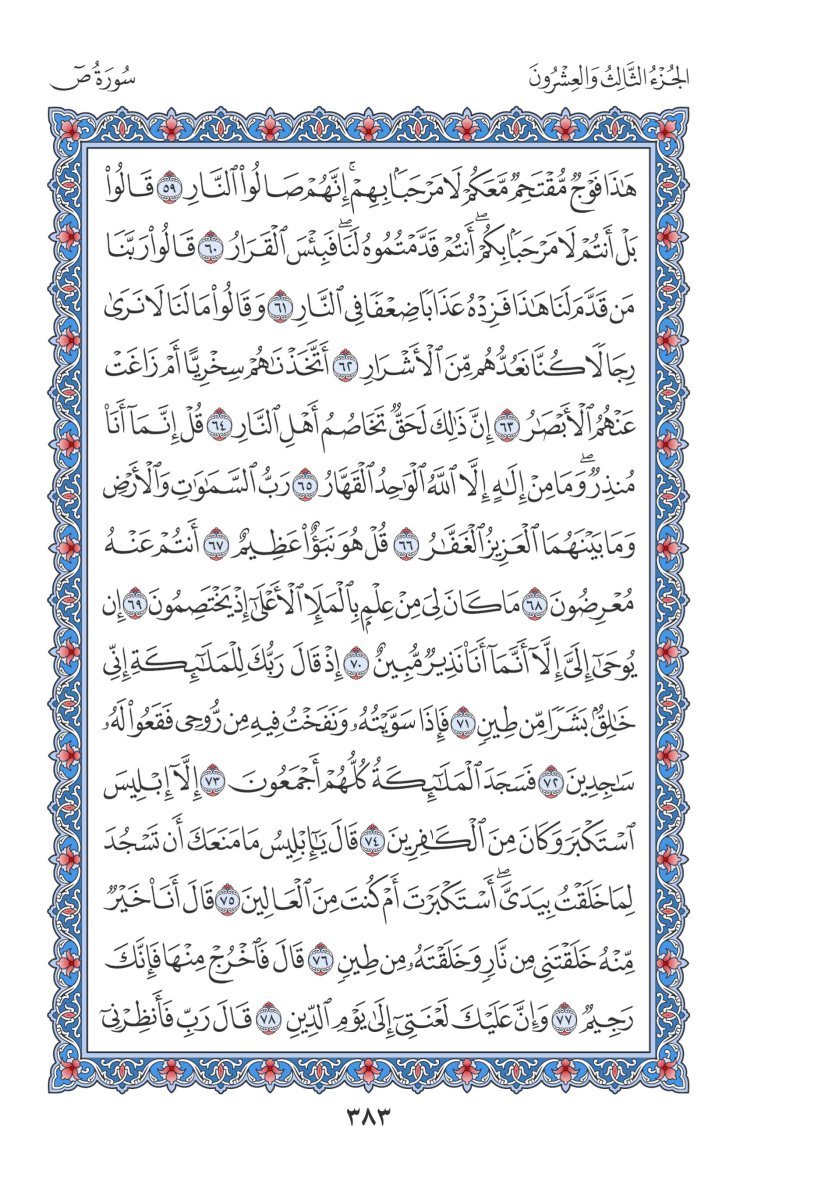 الجُزْءُ الثَّالِثُ وَالعِشْرُونَ
سُورَةُ صٓ
هَٰذَا فَوْجٌ مُّقْتَحِمٌ مَّعَكُمْ لَا مَرْحَبًۢا بِهِمْۚ إِنَّهُمْ صَالُوا۟ ٱلنَّارِ ٥٩ قَالُوا۟
بَلْ أَنتُمْ لَا مَرْحَبًۢا بِكُمْۖ أَنتُمْ قَدَّمْتُمُوهُ لَنَاۖ فَبِئْسَ ٱلْقَرَارُ ٦٠ قَالُوا۟ رَبَّنَا
مَن قَدَّمَ لَنَا هَٰذَا فَزِدْهُ عَذَابًا ضِعْفًا فِى ٱلنَّارِ ٦١ وَقَالُوا۟ مَا لَنَا لَا نَرَىٰ
رِجَالًا كُنَّا نَعُدُّهُم مِّنَ ٱلْأَشْرَارِ ٦٢ أَتَّخَذْنَٰهُمْ سِخْرِيًّا أَمْ زَاغَتْ
عَنْهُمُ ٱلْأَبْصَٰرُ ٦٣ إِنَّ ذَٰلِكَ لَحَقٌّ تَخَاصُمُ أَهْلِ ٱلنَّارِ ٦٤ قُلْ إِنَّمَآ أَنَا۠
مُنذِرٌۖ وَمَا مِنْ إِلَٰهٍ إِلَّا ٱللَّهُ ٱلْوَٰحِدُ ٱلْقَهَّارُ ٦٥ رَبُّ ٱلسَّمَٰوَٰتِ وَٱلْأَرْضِ
وَمَا بَيْنَهُمَا ٱلْعَزِيزُ ٱلْغَفَّٰرُ ٦٦ قُلْ هُوَ نَبَؤٌا۟ عَظِيمٌ ٦٧ أَنتُمْ عَنْهُ
مُعْرِضُونَ ٦٨ مَا كَانَ لِىَ مِنْ عِلْمٍۭ بِٱلْمَلَإِ ٱلْأَعْلَىٰٓ إِذْ يَخْتَصِمُونَ ٦٩ إِن
يُوحَىٰٓ إِلَىَّ إِلَّآ أَنَّمَآ أَنَا۠ نَذِيرٌ مُّبِينٌ ٧٠ إِذْ قَالَ رَبُّكَ لِلْمَلَٰٓئِكَةِ إِنِّى
خَٰلِقٌۢ بَشَرًا مِّن طِينٍ ٧١ فَإِذَا سَوَّيْتُهُۥ وَنَفَخْتُ فِيهِ مِن رُّوحِى فَقَعُوا۟ لَهُۥ
سَٰجِدِينَ ٧٢ فَسَجَدَ ٱلْمَلَٰٓئِكَةُ كُلُّهُمْ أَجْمَعُونَ ٧٣ إِلَّآ إِبْلِيسَ
ٱسْتَكْبَرَ وَكَانَ مِنَ ٱلْكَٰفِرِينَ ٧٤ قَالَ يَٰٓإِبْلِيسُ مَا مَنَعَكَ أَن تَسْجُدَ
لِمَا خَلَقْتُ بِيَدَىَّۖ أَسْتَكْبَرْتَ أَمْ كُنتَ مِنَ ٱلْعَالِينَ ٧٥ قَالَ أَنَا۠ خَيْرٌ
مِّنْهُ خَلَقْتَنِى مِن نَّارٍ وَخَلَقْتَهُۥ مِن طِينٍ ٧٦ قَالَ فَٱخْرُجْ مِنْهَا فَإِنَّكَ
رَجِيمٌ ٧٧ وَإِنَّ عَلَيْكَ لَعْنَتِىٓ إِلَىٰ يَوْمِ ٱلدِّينِ ٧٨ قَالَ رَبِّ فَأَنظِرْنِىٓ
٣٨٣